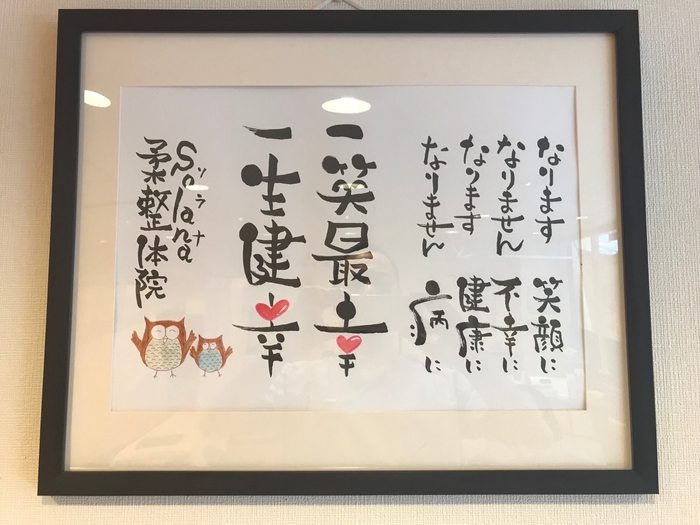 なります 笑顔に
なりません 不幸に
なります 健康に
なりません 病に
一笑最幸
一生健幸
Solana
ソラナ
柔整体院